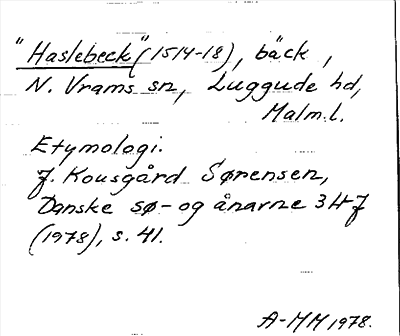 "Haslebeck" (1514-18), bäck,
N. Vrams sn, Luggude hd,
Malm.l.
Etymologi:
J. Kousgård Sørensen,
Danske sø- og ånavne 3 H-J
(1978), s. 41.
A-MM 1978.